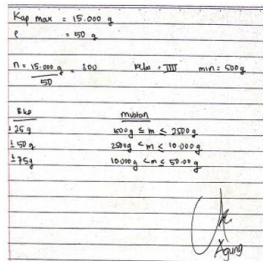 Kap max = 15.000 g
e = 50 g
n = 15.000 g = 100 Kelas = III min = 500g
50
Bkd muatan
± 25 g 500 g ≤ m ≤ 2500 g
± 50 g 2500g < m ≤ 10.000 g
± 75g 10.000g < m ≤ 50.00 g
Agung